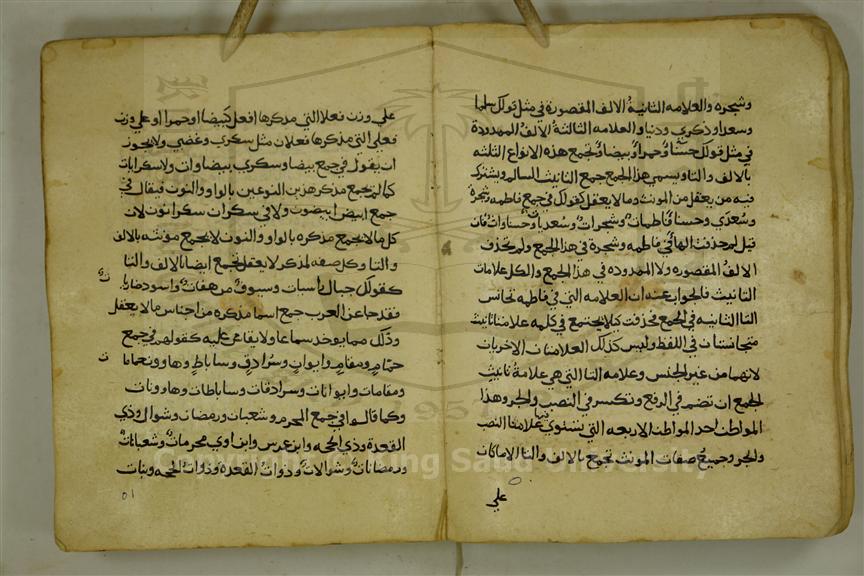 وشجره والعلامه الثانية الالف المقصورة في مثل قولك سلما
وسعدا وذكري ودنيا والعلامه الثالثة الالف الممدودة
في مثل قولك حسنا وحمرا وبيضا وتجمع هذه الانواع الثلثه
بالالف والتا ويسمي هذا الجمع جمع التانيث السالم ويشترك
فيه من يعقل من المونث وما لا يعقل كقولك في جمع فاطمه وشجرة
وسعدي وحسنا فاطمات وشجرات وسعديات وحسناوات فان
قيل لم حذفت الها في فاطمه وشجرة في هذا الجمع ولم تحذف
الالف المقصوره ولا الممدوده في هذا الجمع والكل علامات
التانيث فالجواب عنه ان العلامه التي في فاطمه تجانس
التا الثانيه في الجمع فحذفت كيلا يجتمع في كلمه علامتا تانيث
متجانستان في اللفظ وليس كذلك العلامتان الاخريات
لانهما من غير الجنس وعلامه التا التي هي علامة تانيث
الجمع ان تضم في الرفع وتكسر في النصب والجر وهذا
المواطن احد المواطن الاربعه التي يستوي فيها علامتا النصب
والجر وجميع صفات المونث تجمع بالالف والتا الا ماكان
علي
علي وزن فعلا التي مذكرها افعل كبيضا وحمرا او علي وزن
فعلي التي مذكرها فعلان مثل سكري وغضبي ولا يجوز
ان يقول في جمع بيضا وسكري بيضاوات ولا سكرايات
كما لم يجمع مذكر هذين النوعين بالواو والنون فيقال في
جمع ابيض ابيضون ولا في سكران سكرانون لان
كل ما لا يجمع مذكره بالواو والنون لا يجمع مونثه بالالف
والتا وكل صفه لمذكر لا يعقل تجمع ايضا بالالف والتا
كقولك جبال راسيات وسيوف مرهفات واسود ضاريات
فقد جا عن العرب جمع اسما مذكره من اجناس ما لا يعقل
وذلك مما يوخد سماعا ولا يقاس عليه كقولهم في جمع
حمام ومقام وايوان وسرادق وساباط وهاوون حمامات
ومقامات وايوانات وسرادقات وساباطات وهاوونات
وكما قالوا في جمع المحرم وشعبان ورمضان وشوال وذي
القعدة وذي الحجه وابن عرس وابن اوي محرمات وشعبانات
ورمضانات وشوالات وذوات القعدة وذوات الحجه وبنات
٥١